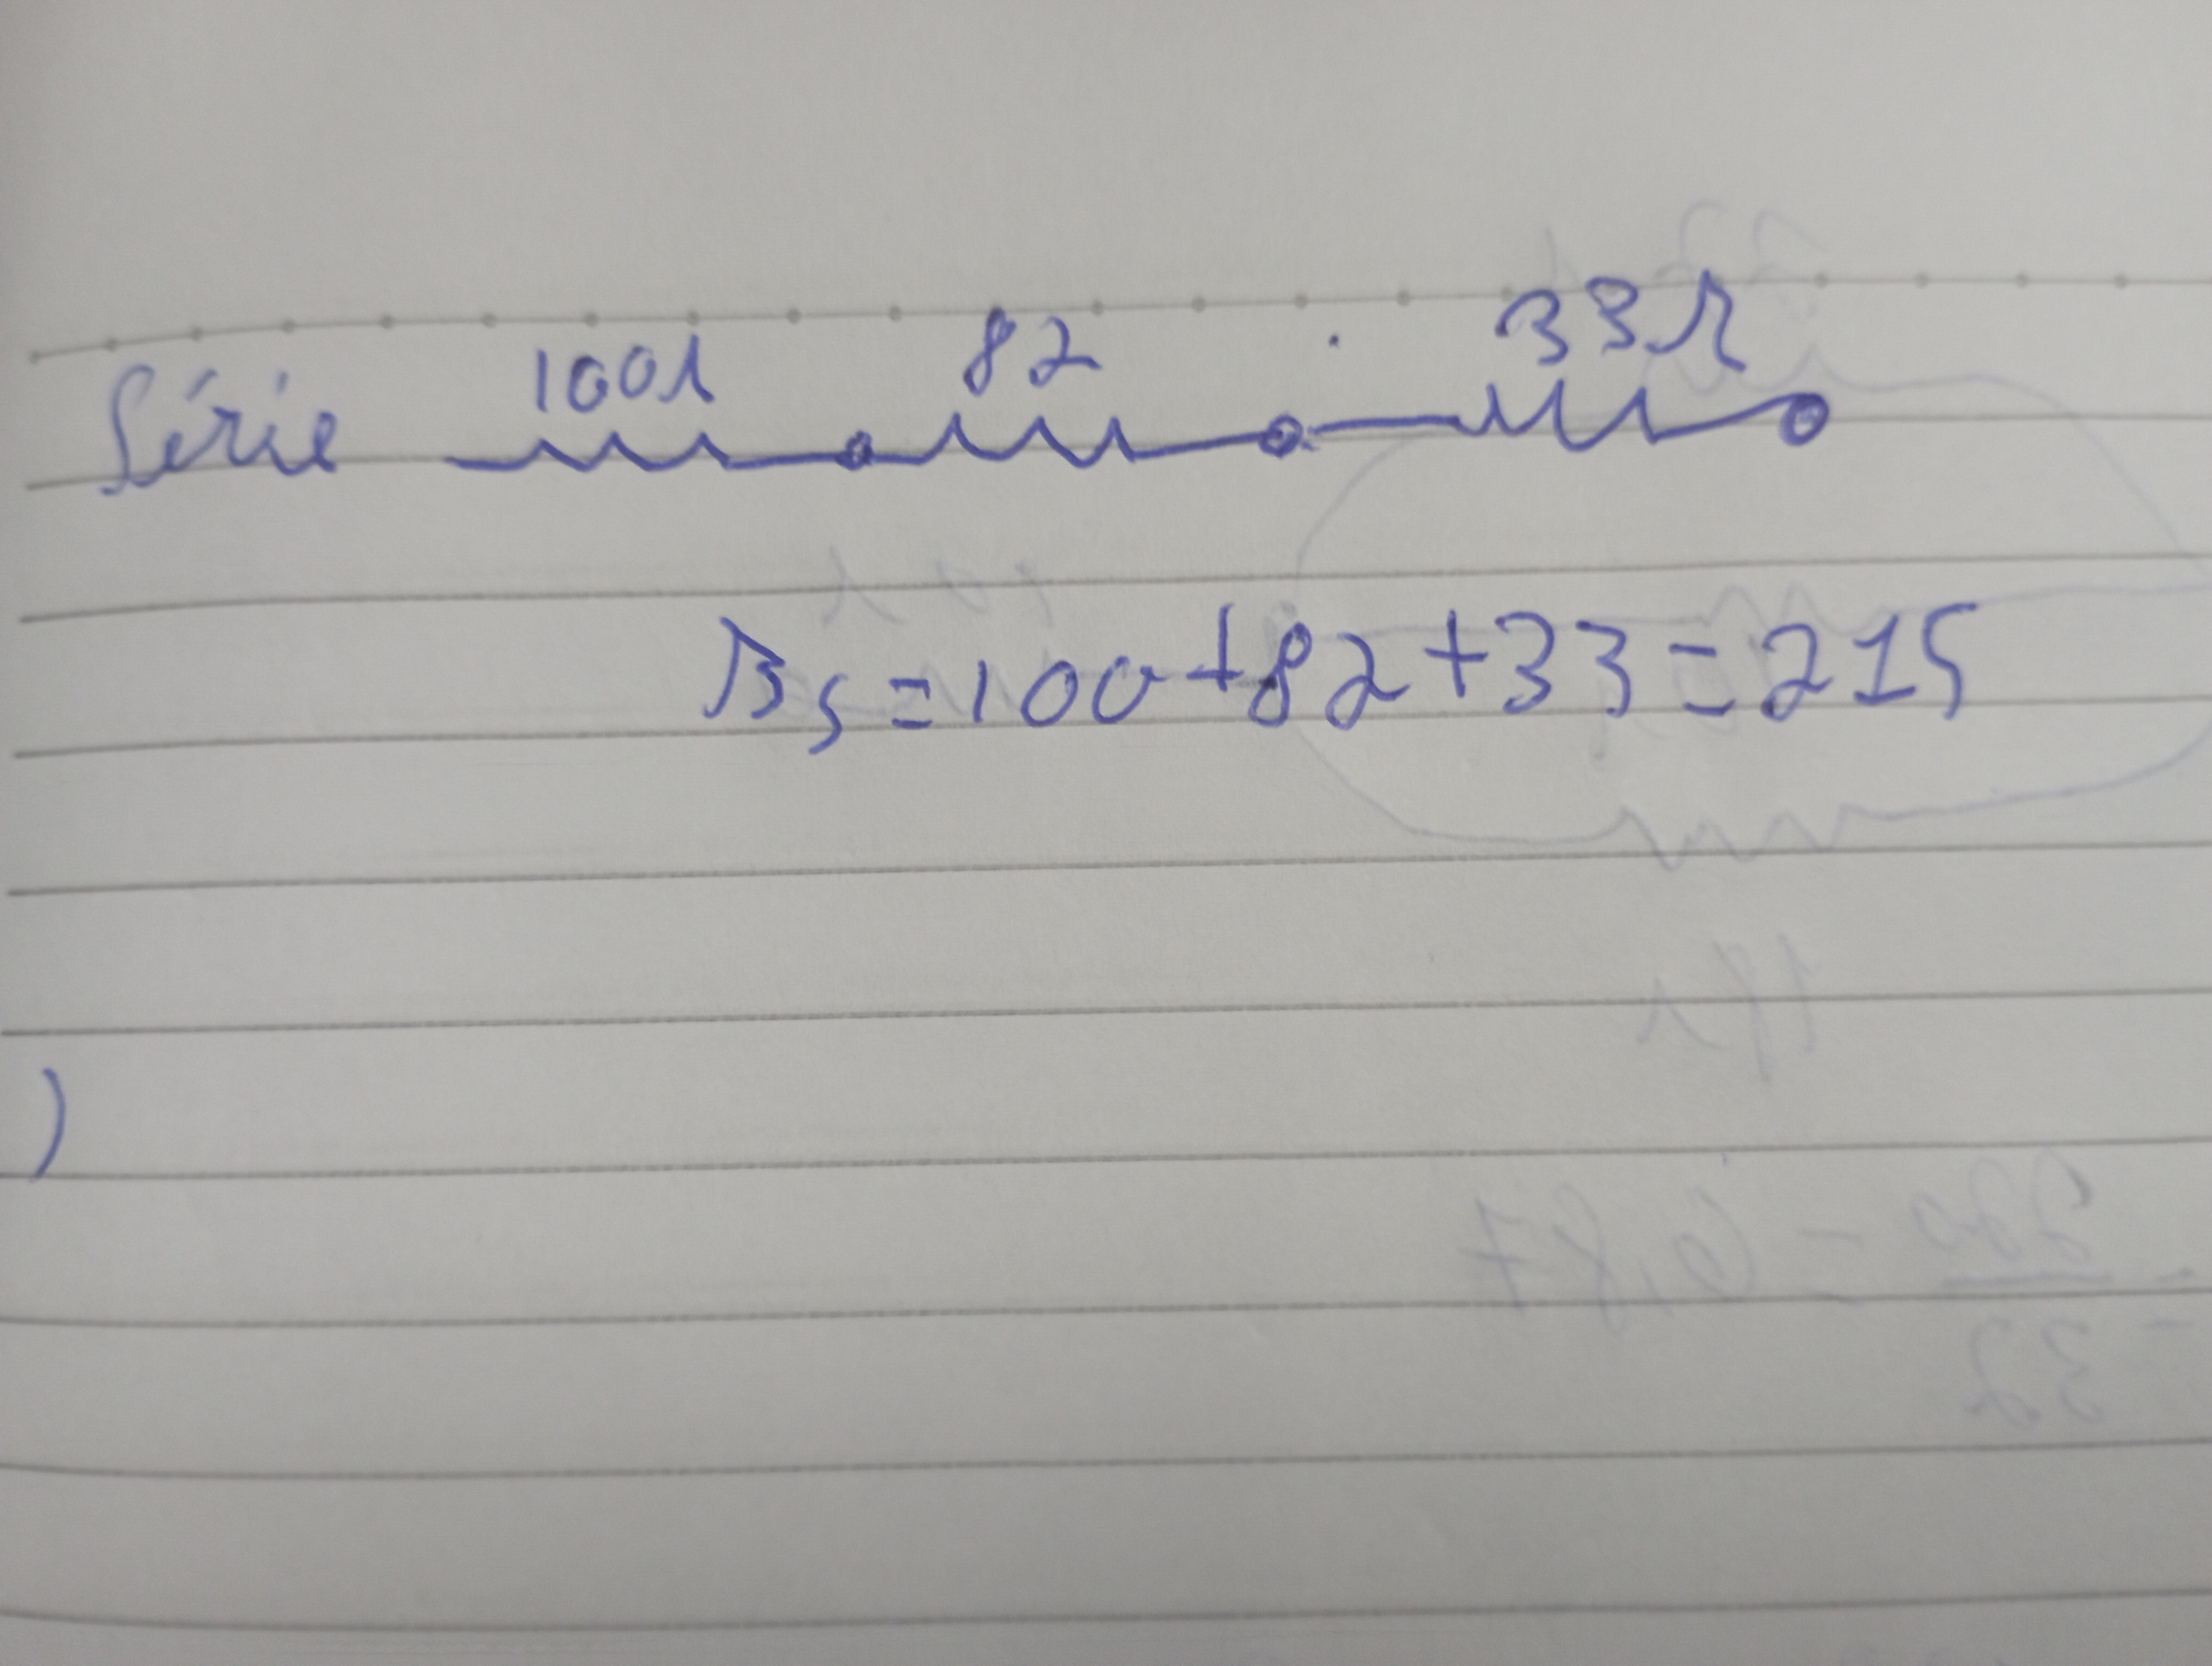 Série
100Ω 82 33Ω
Rs = 100 + 82 + 33 = 215
)